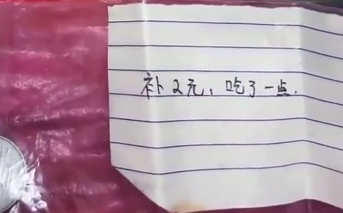 补2元，吃了一点.